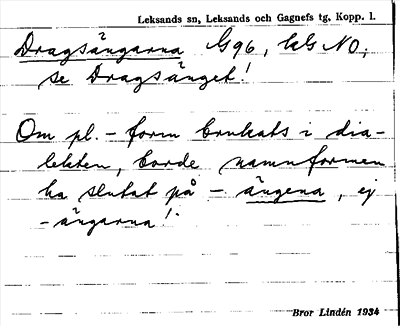 Leksands sn, Leksands och Gagnefs tg, Kopp. l.
Dragsängarna G96, lG NO;
se Dragsänget!
Om pl. - form brukats i dia-
lekten, borde namnformen
ha slutat på - ängena, ej
- ängarna!
Bror Lindén 1934